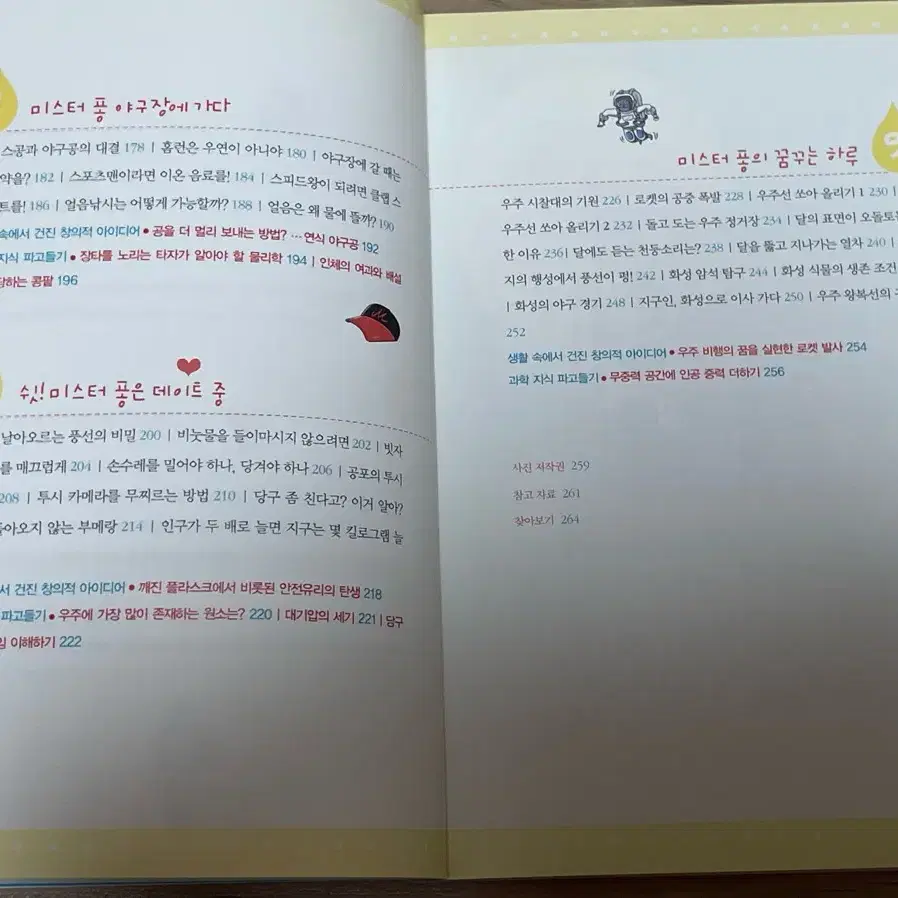 미스터 퐁 야구장에 가다
스공과 야구공의 대결 178 | 홈런은 우연이 아니야 180 | 야구장에 갈 때는
약을? 182 | 스포츠맨이라면 이온 음료를! 184 | 스피드왕이 되려면 클랩 스
트를! 186 | 얼음낚시는 어떻게 가능할까? 188 | 얼음은 왜 물에 뜰까? 190
속에서 건진 창의적 아이디어 • 공을 더 멀리 보내는 방법? … 연식 야구공 192
지식 파고들기 • 장타를 노리는 타자가 알아야 할 물리학 194 | 인체의 여과와 배설
당하는 콩팥 196
쉿! 미스터 퐁은 데이트 중
날아오르는 풍선의 비밀 200 | 비눗물을 들이마시지 않으려면 202 | 빗자
를 매끄럽게 204 | 손수레를 밀어야 하나, 당겨야 하나 206 | 공포의 투시
208 | 투시 카메라를 무찌르는 방법 210 | 당구 좀 친다고? 이거 알아?
돌아오지 않는 부메랑 214 | 인구가 두 배로 늘면 지구는 몇 킬로그램 늘
서 건진 창의적 아이디어 • 깨진 플라스크에서 비롯된 안전유리의 탄생 218
파고들기 • 우주에 가장 많이 존재하는 원소는? 220 | 대기압의 세기 221 | 당구
임 이해하기 222
미스터 퐁의 꿈꾸는 하루
우주 시찰대의 기원 226 | 로켓의 공중 폭발 228 | 우주선 쏘아 올리기 1 230 |
우주선 쏘아 올리기 2 232 | 돌고 도는 우주 정거장 234 | 달의 표면이 오돌토
한 이유 236 | 달에도 듣는 천둥소리는? 238 | 달을 뚫고 지나가는 열차 240 |
지의 행성에서 풍선이 펑! 242 | 화성 암석 탐구 244 | 화성 식물의 생존 조건
| 화성의 야구 경기 248 | 지구인, 화성으로 이사 가다 250 | 우주 왕복선의
252
생활 속에서 건진 창의적 아이디어 • 우주 비행의 꿈을 실현한 로켓 발사 254
과학 지식 파고들기 • 무중력 공간에 인공 중력 더하기 256
사진 저작권 259
참고 자료 261
찾아보기 264